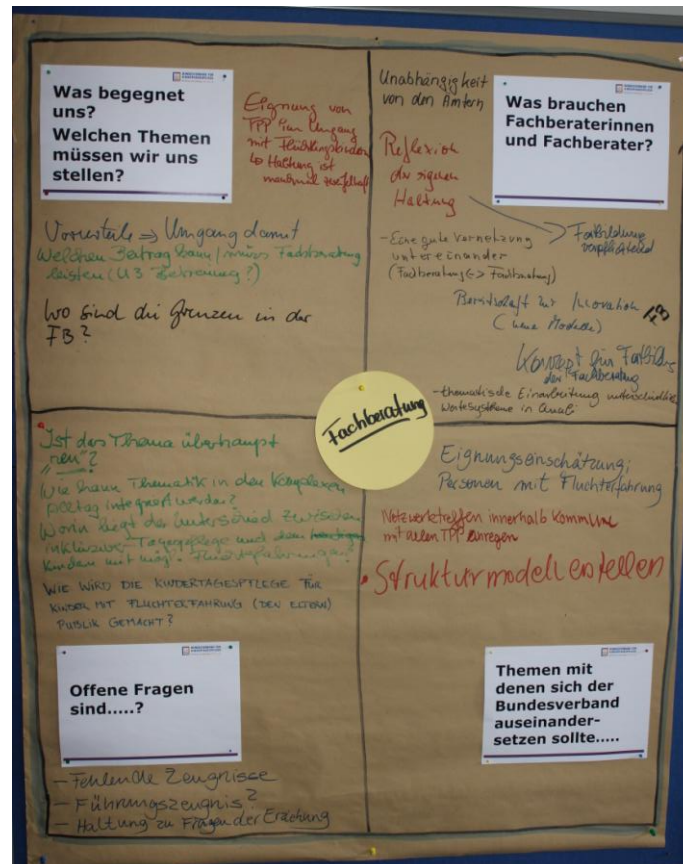 Was begegnet
uns?
Welchen Themen
müssen wir uns
stellen?
Eignung von
TPP im Umgang
mit Flüchtlingskindern
↳ Haltung ist
manchmal zweifelhaft
Vorurteile ⇒ Umgang damit
Welchen Beitrag kann/muss Fachberatung
leisten (U3 Betreuung?)
Wo sind die Grenzen in der
FB?
Unabhängigkeit
von den Ämtern
Was brauchen
Fachberaterinnen
und Fachberater?
Reflexion
der eigenen
Haltung
Fortbildung
verpflichtend
- Eine gute Vernetzung
untereinander
(Fachberatung <-> Fachberatung)
Bereitschaft zur Innovation
(neue Modelle)
FB
Konzept für Fortbildg
der Fachberatung
- thematische Einarbeitung unterschiedliche
Wertesysteme in
Fachberatung
Ist das Thema überhaupt
"neu"?
Wie kann Thematik in den komplexen
Alltag integriert werden?
Worin liegt der Unterschied zwischen
inklusiver Tagespflege und dem
Kindern mit mögl. Fluchterfahrungen?
WIE WIRD DIE KINDERTAGESPFLEGE FÜR
KINDER MIT FLUCHTERFAHRUNG (DEN ELTERN)
PUBLIK GEMACHT?
Offene Fragen
sind.....?
- Fehlende Zeugnisse
- Führungszeugnis?
- Haltung zu Fragen der Erziehung
Eignungseinschätzung;
Personen mit Fluchterfahrung
Netzwerktreffen innerhalb Kommune
mit allen TPP anregen
Strukturmodell erstellen
Themen mit
denen sich der
Bundesverband
auseinander-
setzen sollte.....